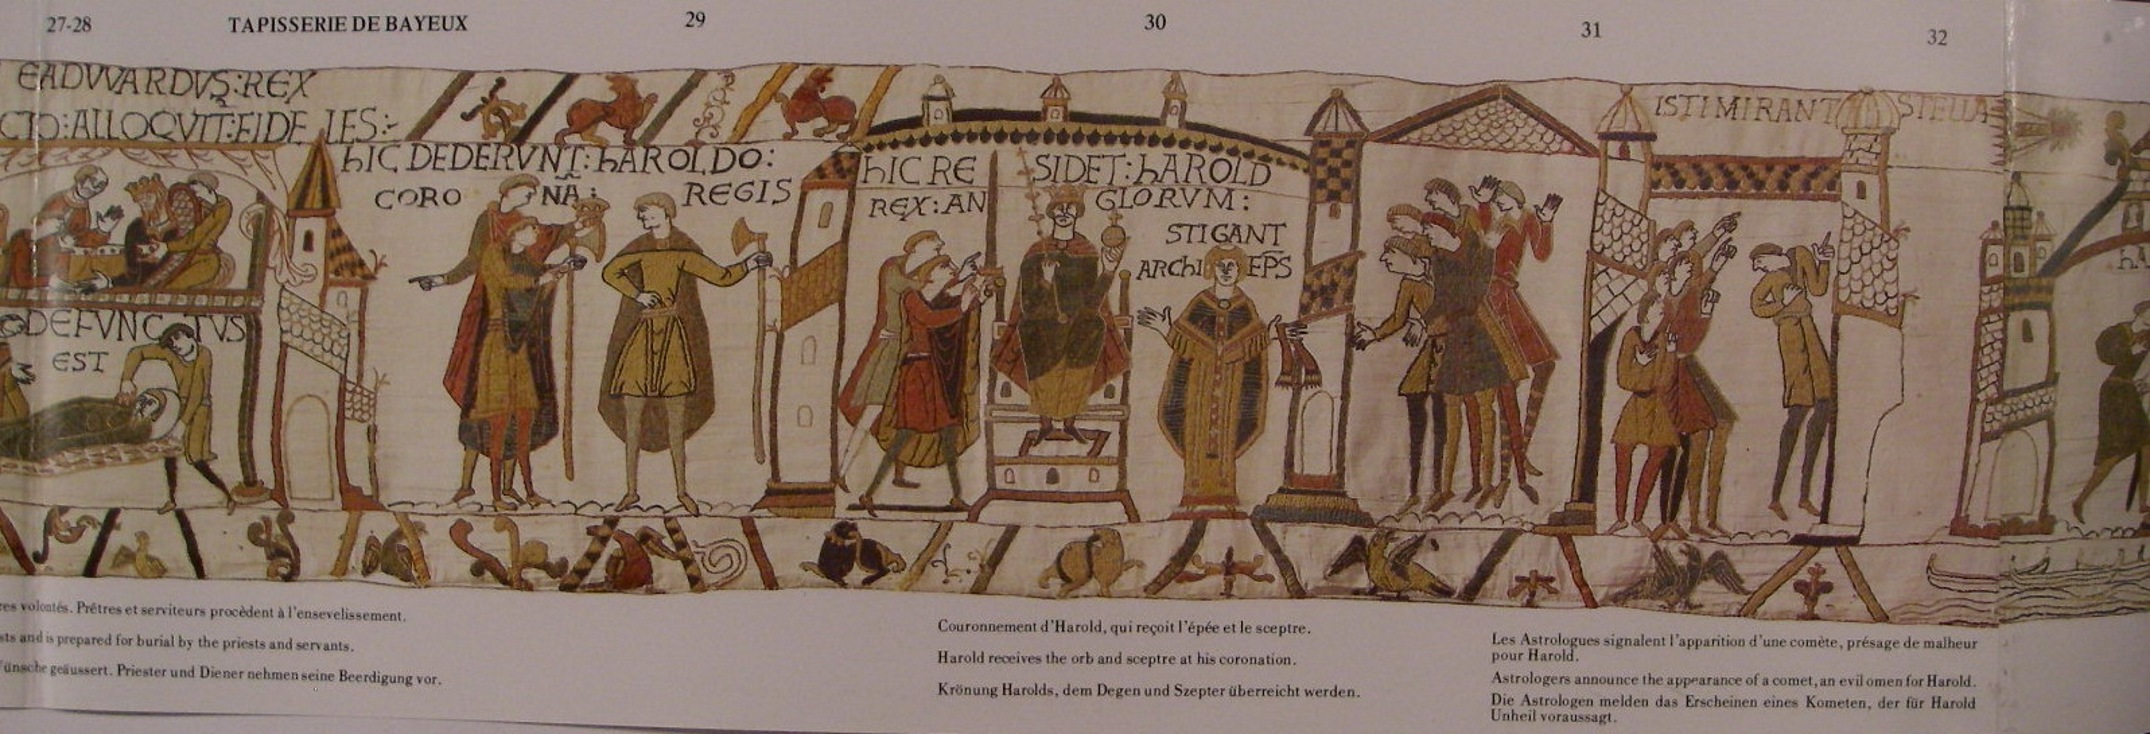 27-28
TAPISSERIE DE BAYEUX
29
30
31
32
EADVVARDVS:REX
ALLOQVIT:FIDELES:
DEFVNCTVS
EST
hIC DEDERVNT:hAROLDO:
CORONA:
REGIS
hIC RESIDET:hAROLD
REX:ANGLORVM:
STIGANT
ARChIEPS
ISTI MIRANT STELLA
hA
res volontés. Prêtres et serviteurs procèdent à l'ensevelissement.
sts and is prepared for burial by the priests and servants.
Wünsche geäussert. Priester und Diener nehmen seine Beerdigung vor.
Couronnement d'Harold, qui reçoit l'épée et le sceptre.
Harold receives the orb and sceptre at his coronation.
Krönung Harolds, dem Degen und Szepter überreicht werden.
Les Astrologues signalent l'apparition d'une comète, présage de malheur
pour Harold.
Astrologers announce the appearance of a comet, an evil omen for Harold.
Die Astrologen melden das Erscheinen eines Kometen, der für Harold
Unheil voraussagt.